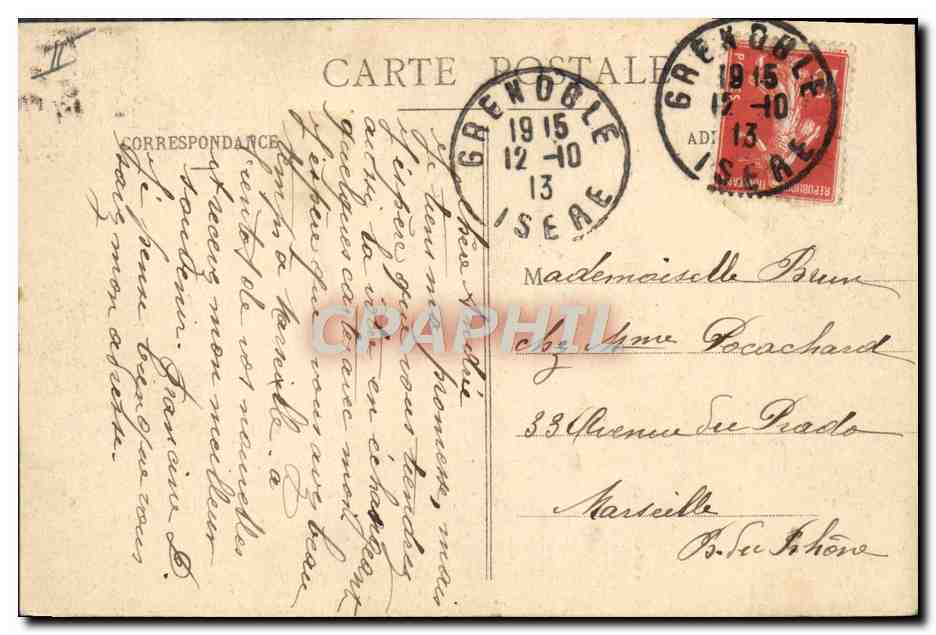 CARTE POSTALE
CORRESPONDANCE
GRENOBLE
19 15
12 - 10
13
ISERE
GRENOBLE
19 15
12 - 10
13
ISERE
Mademoiselle Brun
chez Mme Pocachard
33 Avenue du Prado
Marseille
B. du Rhône
Chère Andrée
Je tiens ma promesse, mais
j'espère que vous tendez
aussi la vie en échangeant
quelques cartes
j'espère que vous avez beau
temps à Marseille. à
bientôt de vos nouvelles
et recevez mon meilleur
souvenir. Francine D
Je pense bien que vous
savez mon adresse.
CPAPHIL